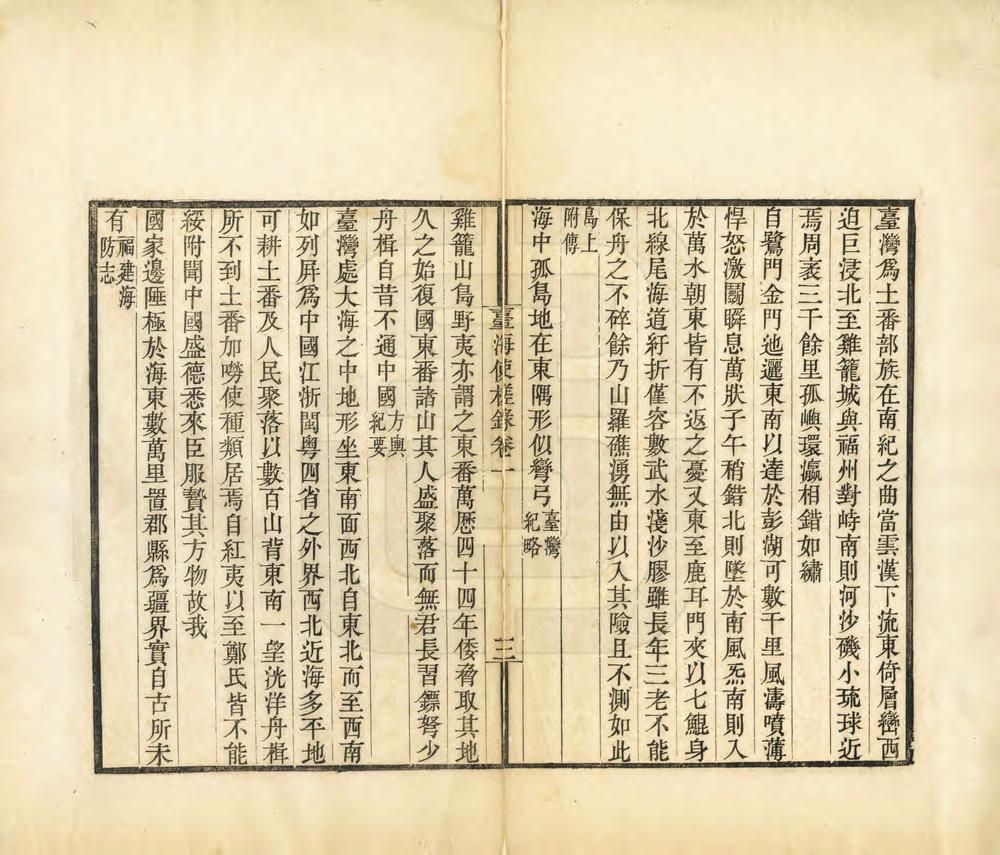 臺灣爲土番部族在南紀之曲當雲漢下流東倚層巒西
迫巨浸北至雞籠城與福州對峙南則河沙磯小琉球近
焉周袤三千餘里孤嶼環瀛相錯如繡
自鷺門金門迤邐東南以達於彭湖可數千里風濤噴薄
悍怒激鬭瞬息萬狀子午稍錯北則墜於南風炁南則入
於萬水朝東皆有不返之憂又東至鹿耳門夾以七鯤身
北線尾海道紆折僅容數武水淺沙膠雖長年三老不能
保舟之不碎餘乃山羅礁湧無由以入其險且不測如此
島上附傳
海中孤島地在東隅形似彎弓臺灣紀略
臺海使槎錄卷一 三
雞籠山島野夷亦謂之東番萬曆四十四年倭脅取其地
久之始復國東番諸山其人盛聚落而無君長習鏢弩少
舟楫自昔不通中國方輿紀要
臺灣處大海之中地形坐東南面西北自東北而至西南
如列屏爲中國江浙閩粵四省之外界西北近海多平地
可耕土番及人民聚落以數百山背東南一望洸洋舟楫
所不到土番加嘮使種類居焉自紅夷以至鄭氏皆不能
綏附聞中國盛德悉來臣服贄其方物故我
國家邊陲極於海東數萬里置郡縣爲疆界實自古所未
有福建海防志